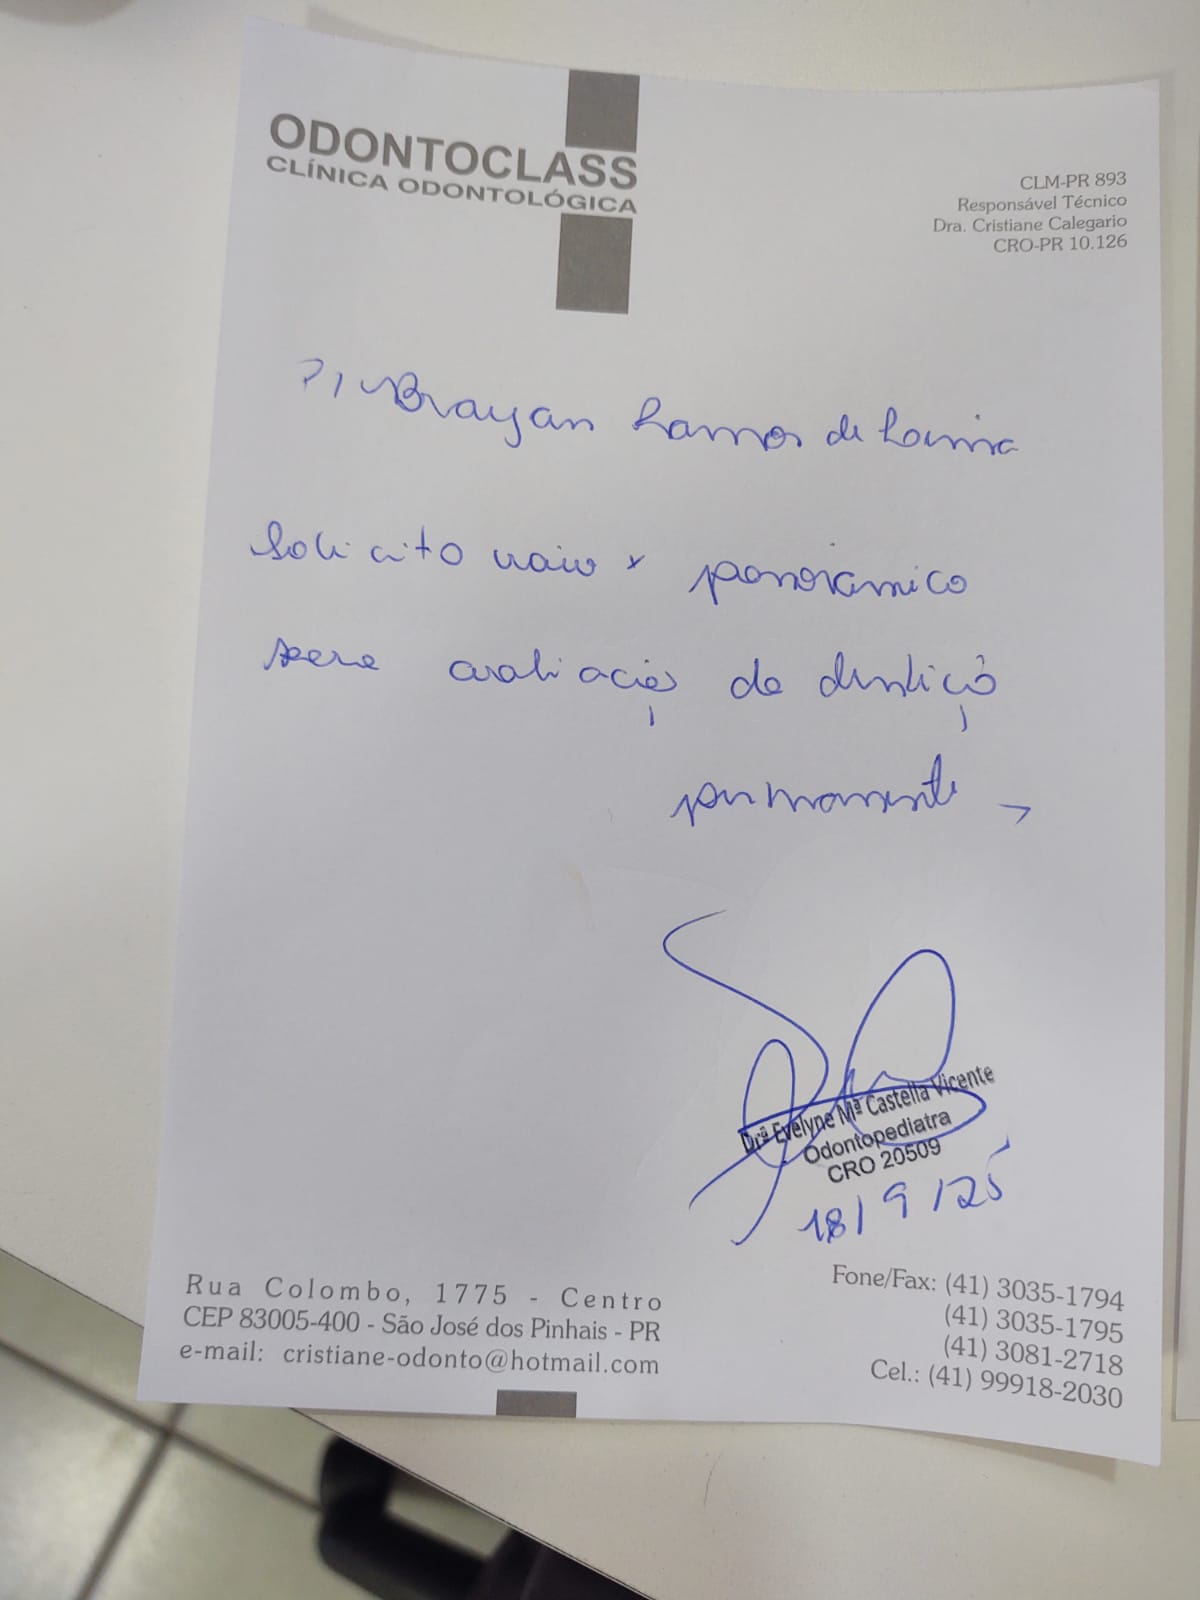 ODONTOCLASS
CLÍNICA ODONTOLÓGICA
CLM-PR 893
Responsável Técnico
Dra. Cristiane Calegario
CRO-PR 10.126
P/ Brayan Ramos de
Solicito raio x panorâmico
para avaliação da dentição
permanente
Drª Evelyne Mª Castella Vicente
Odontopediatra
CRO 20509
18/9/25
Rua Colombo, 1775 - Centro
CEP 83005-400 - São José dos Pinhais - PR
e-mail: cristiane-odonto@hotmail.com
Fone/Fax: (41) 3035-1794
(41) 3035-1795
(41) 3081-2718
Cel.: (41) 99918-2030